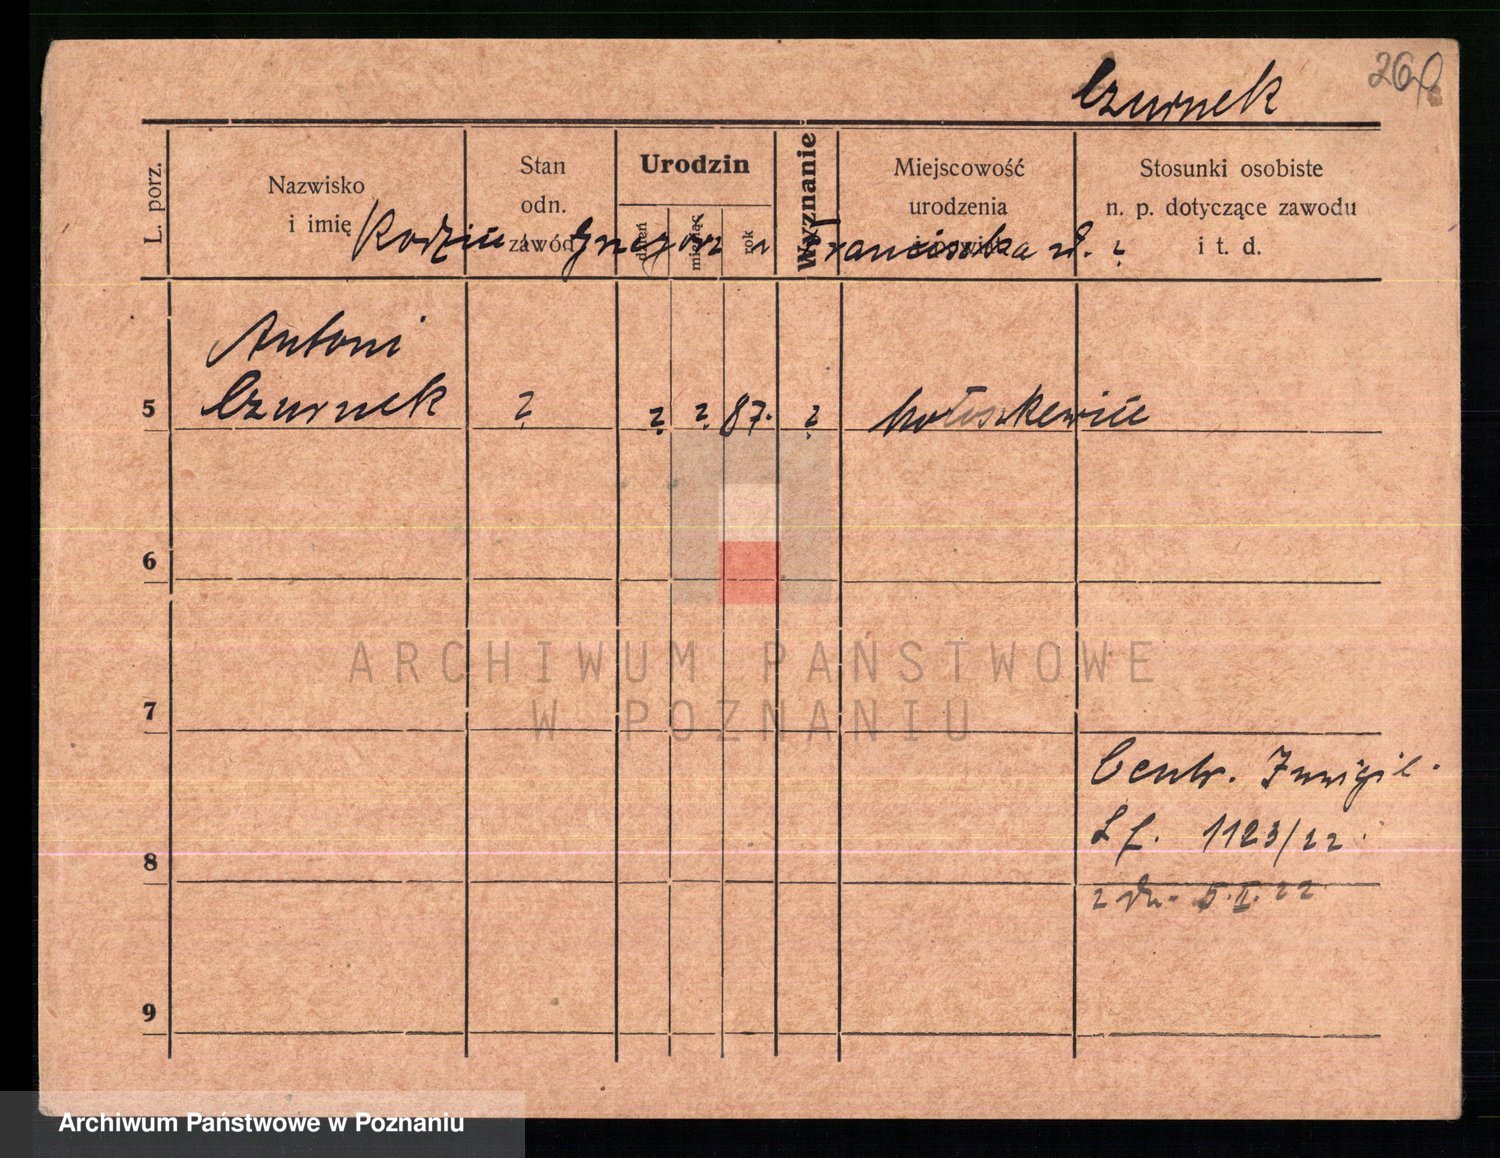 Czurnek
L. porz.
Nazwisko
i imię
Stan
odn.
zawód
Urodzin
dzień
miesiąc
rok
Wyznanie
Miejscowość
urodzenia
Stosunki osobiste
n. p. dotyczące zawodu
i t. d.
Rodzice: Grzegorz i Franciszka d. ?
Antoni
5 Czurnek ? ? ? 87. ?
6
ARCHIWUM PAŃSTWOWE
W POZNANIU
7
Centr. Inwigil.
L f. 1123/22.
8
z dn. 5.II.22
9
Archiwum Państwowe w Poznaniu